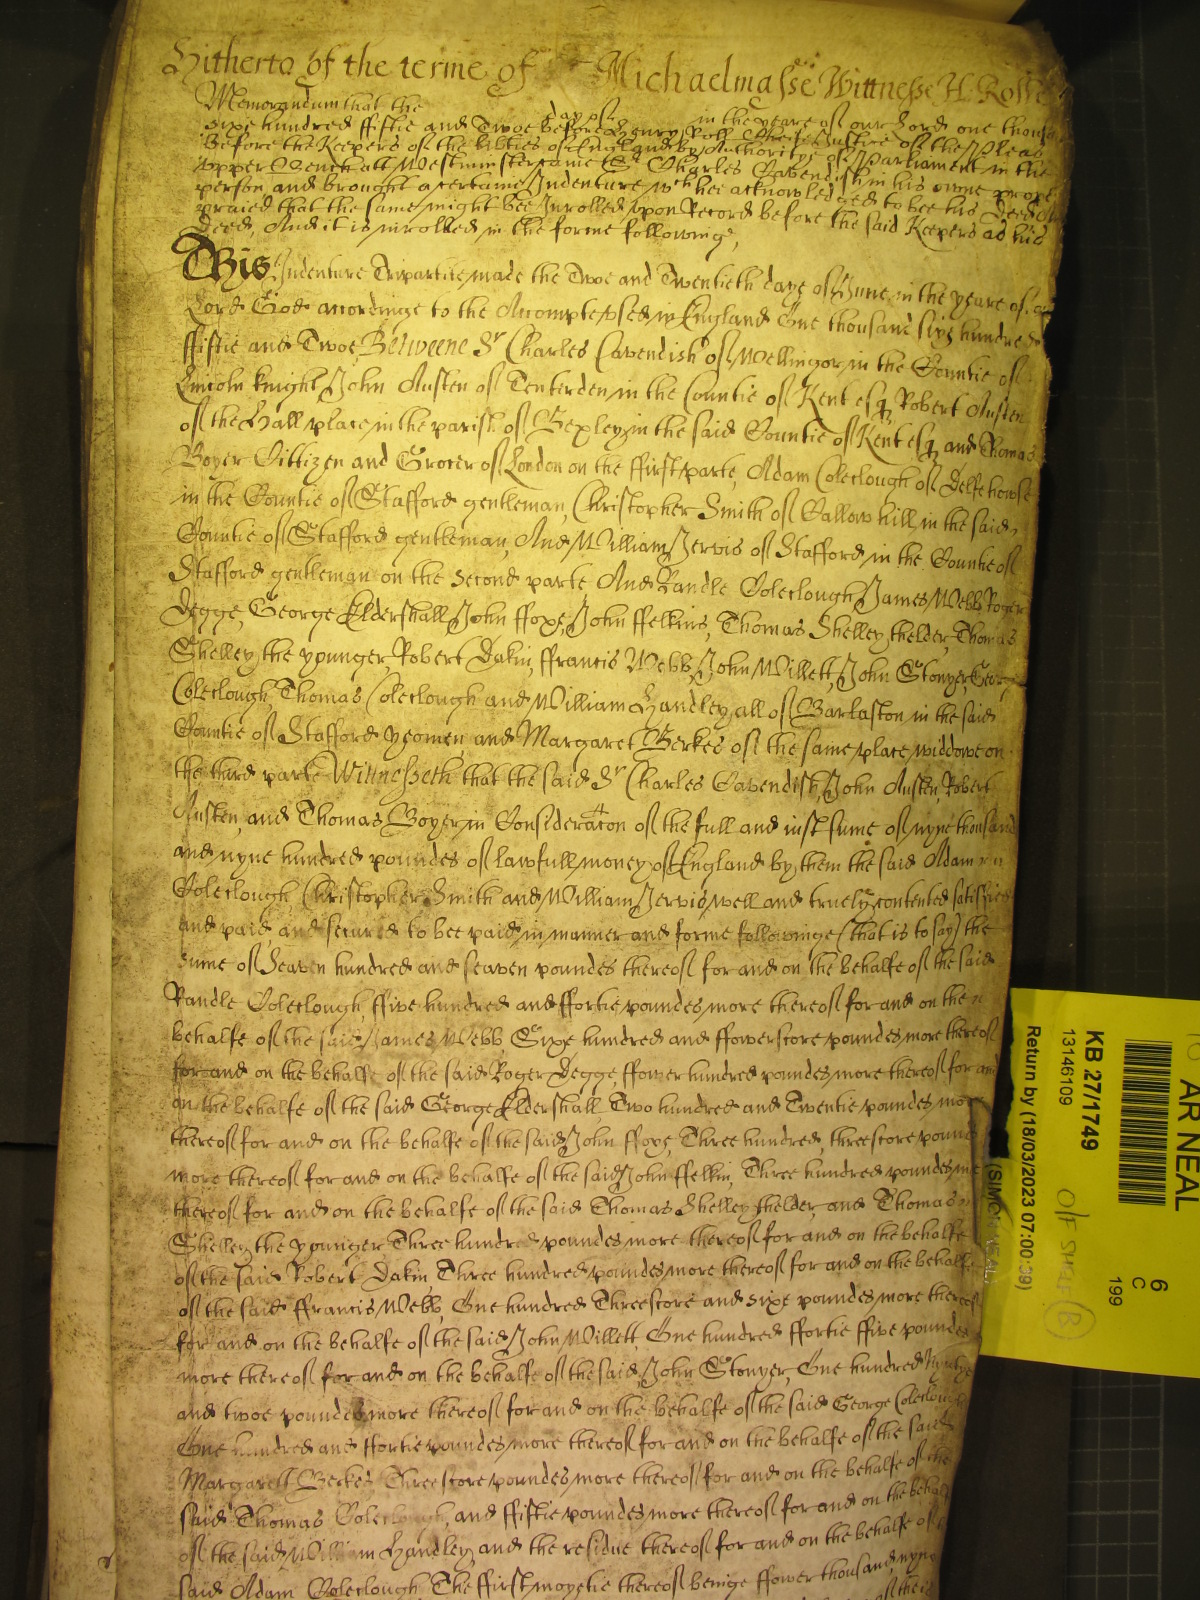 Hitherto of the terme of Michaelmasse Wittnesse H. Rolle
Memorandum that the day of in the yeare of our Lord one thousand
sixe hundred fiftie and Twoe before Henry Roll Cheife Justice of the Pleas
before the Keepers of the lib'ties of England by Authoritye of Parliament in the
upper Bench att Westminster came Sr Charles Cavendish in his owne proper
person and brought a certaine Indenture wch hee acknowledged to bee his Deed And
praied that the same might bee Inrolled upon Record before the said Keepers as his
Deed, And it is inrolled in the forme followinge,
This Indenture Tripartite made the Twoe and Twentieth daye of June in the yeare of
Lord God accordinge to the Accompte used in England One thousand sixe hundred
ffiftie and Twoe Betweene Sr Charles Cavendish of Wellingor in the Countie of
Lincoln knight John Austen of Tenterden in the Countie of Kent esq Robert Austen
of the Hall place in the parish of Bexley in the said Countie of Kent esq and Thomas
Boyer Cittizen and Grocer of London on the ffirst parte, Adam Coleclough of Delfe howse
in the Countie of Stafford gentleman, Christopher Smith of Callow hill in the said
Countie of Stafford gentleman, And William Jervis of Stafford in the Countie of
Stafford gentleman on the second parte And Randle Coleclough James Webb Roger
Degge, George Eldershall John ffoxe, John ffelkins, Thomas Shelley thelder, Thomas
Shelley the younger, Robert Dakin, ffrancis Webb, John Willett, John Stonyer, George
Coleclough, Thomas Coleclough and William Handley all of Barlaston in the said
Countie of Stafford yeomen, and Margarett Berkes of the same place widdowe on
the third parte Wittnesseth that the said Sr Charles Cavendish, John Austen, Robert
Austen, and Thomas Boyer in Consideracon of the full and iust sume of nyne thousand
and nyne hundred poundes of lawfull money of England by them the said Adam
Coleclough Christopher Smith and William Jervis well and truely contented satisfied
and paid and secured to bee paid in manner and forme followinge (that is to say) the
sume of Seaven hundred and seaven poundes thereof for and on the behalfe of the said
Randle Coleclough, ffive hundred and ffortie poundes more thereof for and on the
behalfe of the said James Webb Sixe hundred and ffowerscore poundes more thereof
for and on the behalfe of the said Roger Degge, ffower hundred poundes more thereof for and
on the behalfe of the said George Eldershall Two hundred and Twentie poundes more
thereof for and on the behalfe of the said John ffoxe, Three hundred threescore pounds
more thereof for and on the behalfe of the said John ffelkin, Three hundred poundes more
thereof for and on the behalfe of the said Thomas Shelley thelder and Thomas
Shelley the younger Three hundred poundes more thereof for and on the behalfe
of the said Robert Dakin Three hundred poundes more thereof for and on the behalfe
of the said ffrancis Webb, One hundred Threescore and sixe poundes more thereof
for and on the behalfe of the said John Willett One hundred ffortie ffive poundes
more thereof for and on the behalfe of the said John Stonyer, One hundred Nyntye
and twoe poundes more thereof for and on the behalfe of the said George Coleclough
One hundred and ffortie poundes more thereof for and on the behalfe of the said
Margarett Berkes Threescore poundes more thereof for and on the behalfe of the
said Thomas Coleclough, and ffiftie poundes more thereof for and on the behalf
of the said William Handley and the residue thereof for and on the behalfe of
said Adam Coleclough The ffirst moyetie thereof beinge ffower thousand nyne
AR NEAL
6
C
199
KB 27/1749
13146109
O/F SIZE B
Return by (18/03/2023 07:00:39)
(SIMON NEAL)